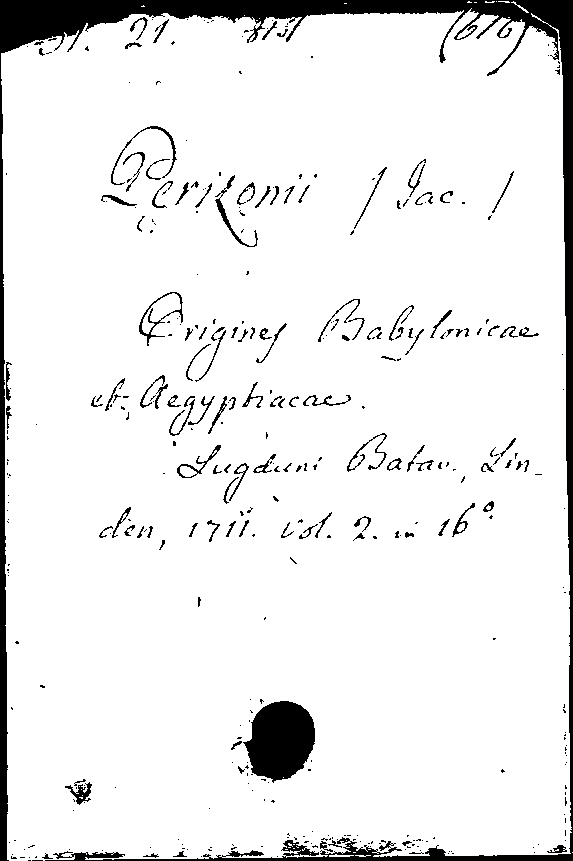 21. (616)
Perizonii / Jac. /
Origines Babylonicae
et Aegyptiacae.
Lugduni Batav., Lin-
den, 1711. vol. 2. in 16°.